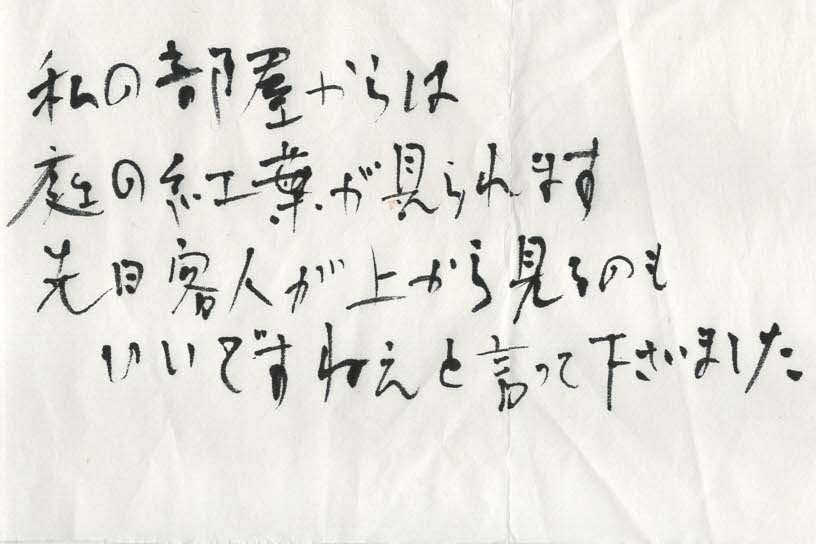 私の部屋からは
庭の紅葉が見られます
先日客人が上から見るのも
いいですねえと言って下さいました